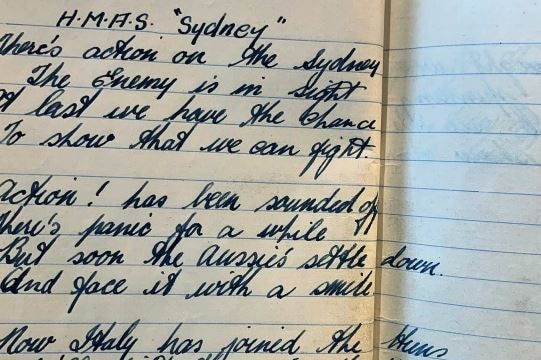 H.M.A.S. "Sydney"
There's action on the Sydney
The Enemy is in sight
At last we have the chance
To show that we can fight.
Action! has been sounded off
There's panic for a while
But soon the Aussie's settle down.
And face it with a smile
Now Italy has joined the Huns